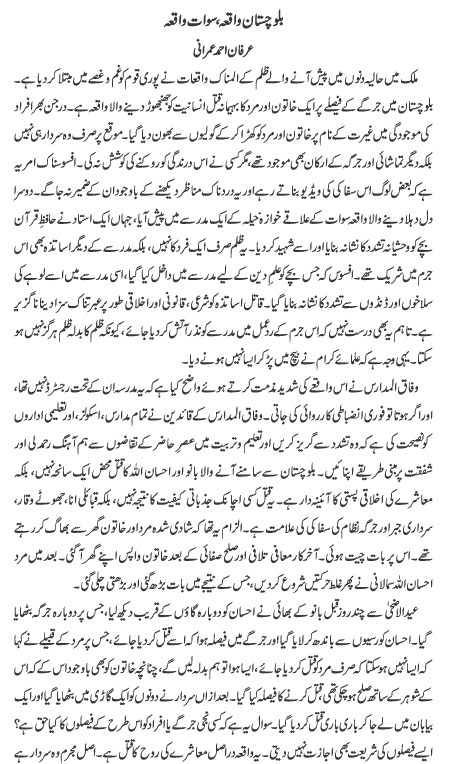 بلوچستان واقعہ، سوات واقعہ
عرفان احمد عمرانی
ملک میں حالیہ دنوں میں پیش آنے والے ظلم کے المناک واقعات نے پوری قوم کو غم و غصے میں مبتلا کر دیا ہے۔
بلوچستان میں جرگے کے فیصلے پر ایک خاتون اور مرد کا بہیمانہ قتل انسانیت کو جھنجھوڑ دینے والا واقعہ ہے۔ درجن بھر افراد
کی موجودگی میں غیرت کے نام پر خاتون اور مرد کو کھڑا کر کے گولیوں سے بھون دیا گیا۔ موقع پر صرف وہ سردار ہی نہیں
بلکہ دیگر تماشائی اور جرگہ کے ارکان بھی موجود تھے، مگر کسی نے اس درندگی کو روکنے کی کوشش نہ کی۔ افسوسناک امر یہ
ہے کہ بعض لوگ اس سفاکی کی ویڈیو بناتے رہے اور یہ دردناک مناظر دیکھنے کے باوجود ان کے ضمیر نہ جاگے۔ دوسرا
دل دہلا دینے والا واقعہ سوات کے علاقے خوازہ خیلہ کے ایک مدرسے میں پیش آیا، جہاں ایک استاد نے حافظِ قرآن
بچے کو وحشیانہ تشدد کا نشانہ بنایا اور اسے شہید کر دیا۔ یہ ظلم صرف ایک فرد کا نہیں، بلکہ مدرسے کے دیگر اساتذہ بھی اس
جرم میں شریک تھے۔ افسوس کہ جس بچے کو علمِ دین کے لیے مدرسے میں داخل کیا گیا، اسی مدرسے میں اسے لوہے کی
سلاخوں اور ڈنڈوں سے تشدد کا نشانہ بنایا گیا۔ قاتل اساتذہ کو شرعی، قانونی اور اخلاقی طور پر عبرتناک سزا دینا ناگزیر
ہے۔ تاہم یہ بھی درست نہیں کہ اس جرم کے ردعمل میں مدرسے کو نذر آتش کر دیا جائے، کیونکہ ظلم کا بدلہ ظلم ہرگز نہیں ہو
سکتا۔ یہی وجہ ہے کہ علمائے کرام نے بیچ میں پڑ کر ایسا نہیں ہونے دیا۔
وفاق المدارس نے اس واقعے کی شدید مذمت کرتے ہوئے واضح کیا ہے کہ یہ مدرسہ ان کے تحت رجسٹرڈ نہیں تھا،
اور اگر ہوتا تو فوری انضباطی کارروائی کی جاتی۔ وفاق المدارس کے قائدین نے تمام مدارس، اسکولز، اور تعلیمی اداروں
کو نصیحت کی ہے کہ وہ تشدد سے گریز کریں اور تعلیم و تربیت میں عصرِ حاضر کے تقاضوں سے ہم آہنگ رحمدلی اور
شفقت پر مبنی طریقے اپنائیں۔ بلوچستان سے سامنے آنے والا بانو اور احسان اللہ کا قتل محض ایک سانحہ نہیں، بلکہ
معاشرے کی اخلاقی پستی کا آئینہ دار ہے۔ یہ قتل کسی اچانک جذباتی کیفیت کا نتیجہ نہیں، بلکہ قبائلی انا، جھوٹے وقار،
سرداری جبر اور جرگہ نظام کی سفاکی کی علامت ہے۔ الزام یہ تھا کہ شادی شدہ مرد اور خاتون گھر سے بھاگ کر رہتے
تھے۔ اس پر بات چیت ہوئی۔ آخر کار معافی تلافی اور صلح صفائی کے بعد خاتون واپس اپنے گھر آ گئی۔ بعد میں مرد
احسان اللہ سمالانی نے پھر غلط حرکتیں شروع کر دیں، جس کے نتیجے میں بات بڑھ گئی اور بڑھتی چلی گئی۔
عید الاضحیٰ سے چند روز قبل بانو کے بھائی نے احسان کو دوبارہ گاؤں کے قریب دیکھ لیا، جس پر دوبارہ جرگہ بٹھایا
گیا۔ احسان کو رسیوں سے باندھ کر لایا گیا اور جرگے میں فیصلہ ہوا کہ اسے قتل کر دیا جائے، جس پر مرد کے قبیلے نے کہا
کہ ایسا نہیں ہو سکتا کہ صرف مرد کو قتل کر دیا جائے، ایسا ہوا تو ہم بدلہ لیں گے، چنانچہ خاتون کو بھی باوجود اس کے کہ اس
کے شوہر کے ساتھ صلح ہو چکی تھی، قتل کرنے کا فیصلہ کیا گیا۔ بعد ازاں سردار نے دونوں کو ایک گاڑی میں بٹھایا گیا اور ایک
بیابان میں لے جا کر باری باری قتل کر دیا گیا۔ سوال یہ ہے کہ کسی نجی جرگے یا افراد کو اس طرح کے فیصلوں کا کیا حق ہے؟
ایسے فیصلوں کی شریعت بھی اجازت نہیں دیتی۔ یہ واقعہ دراصل معاشرے کی روح کا قتل ہے۔ اصل مجرم وہ سردار ہے